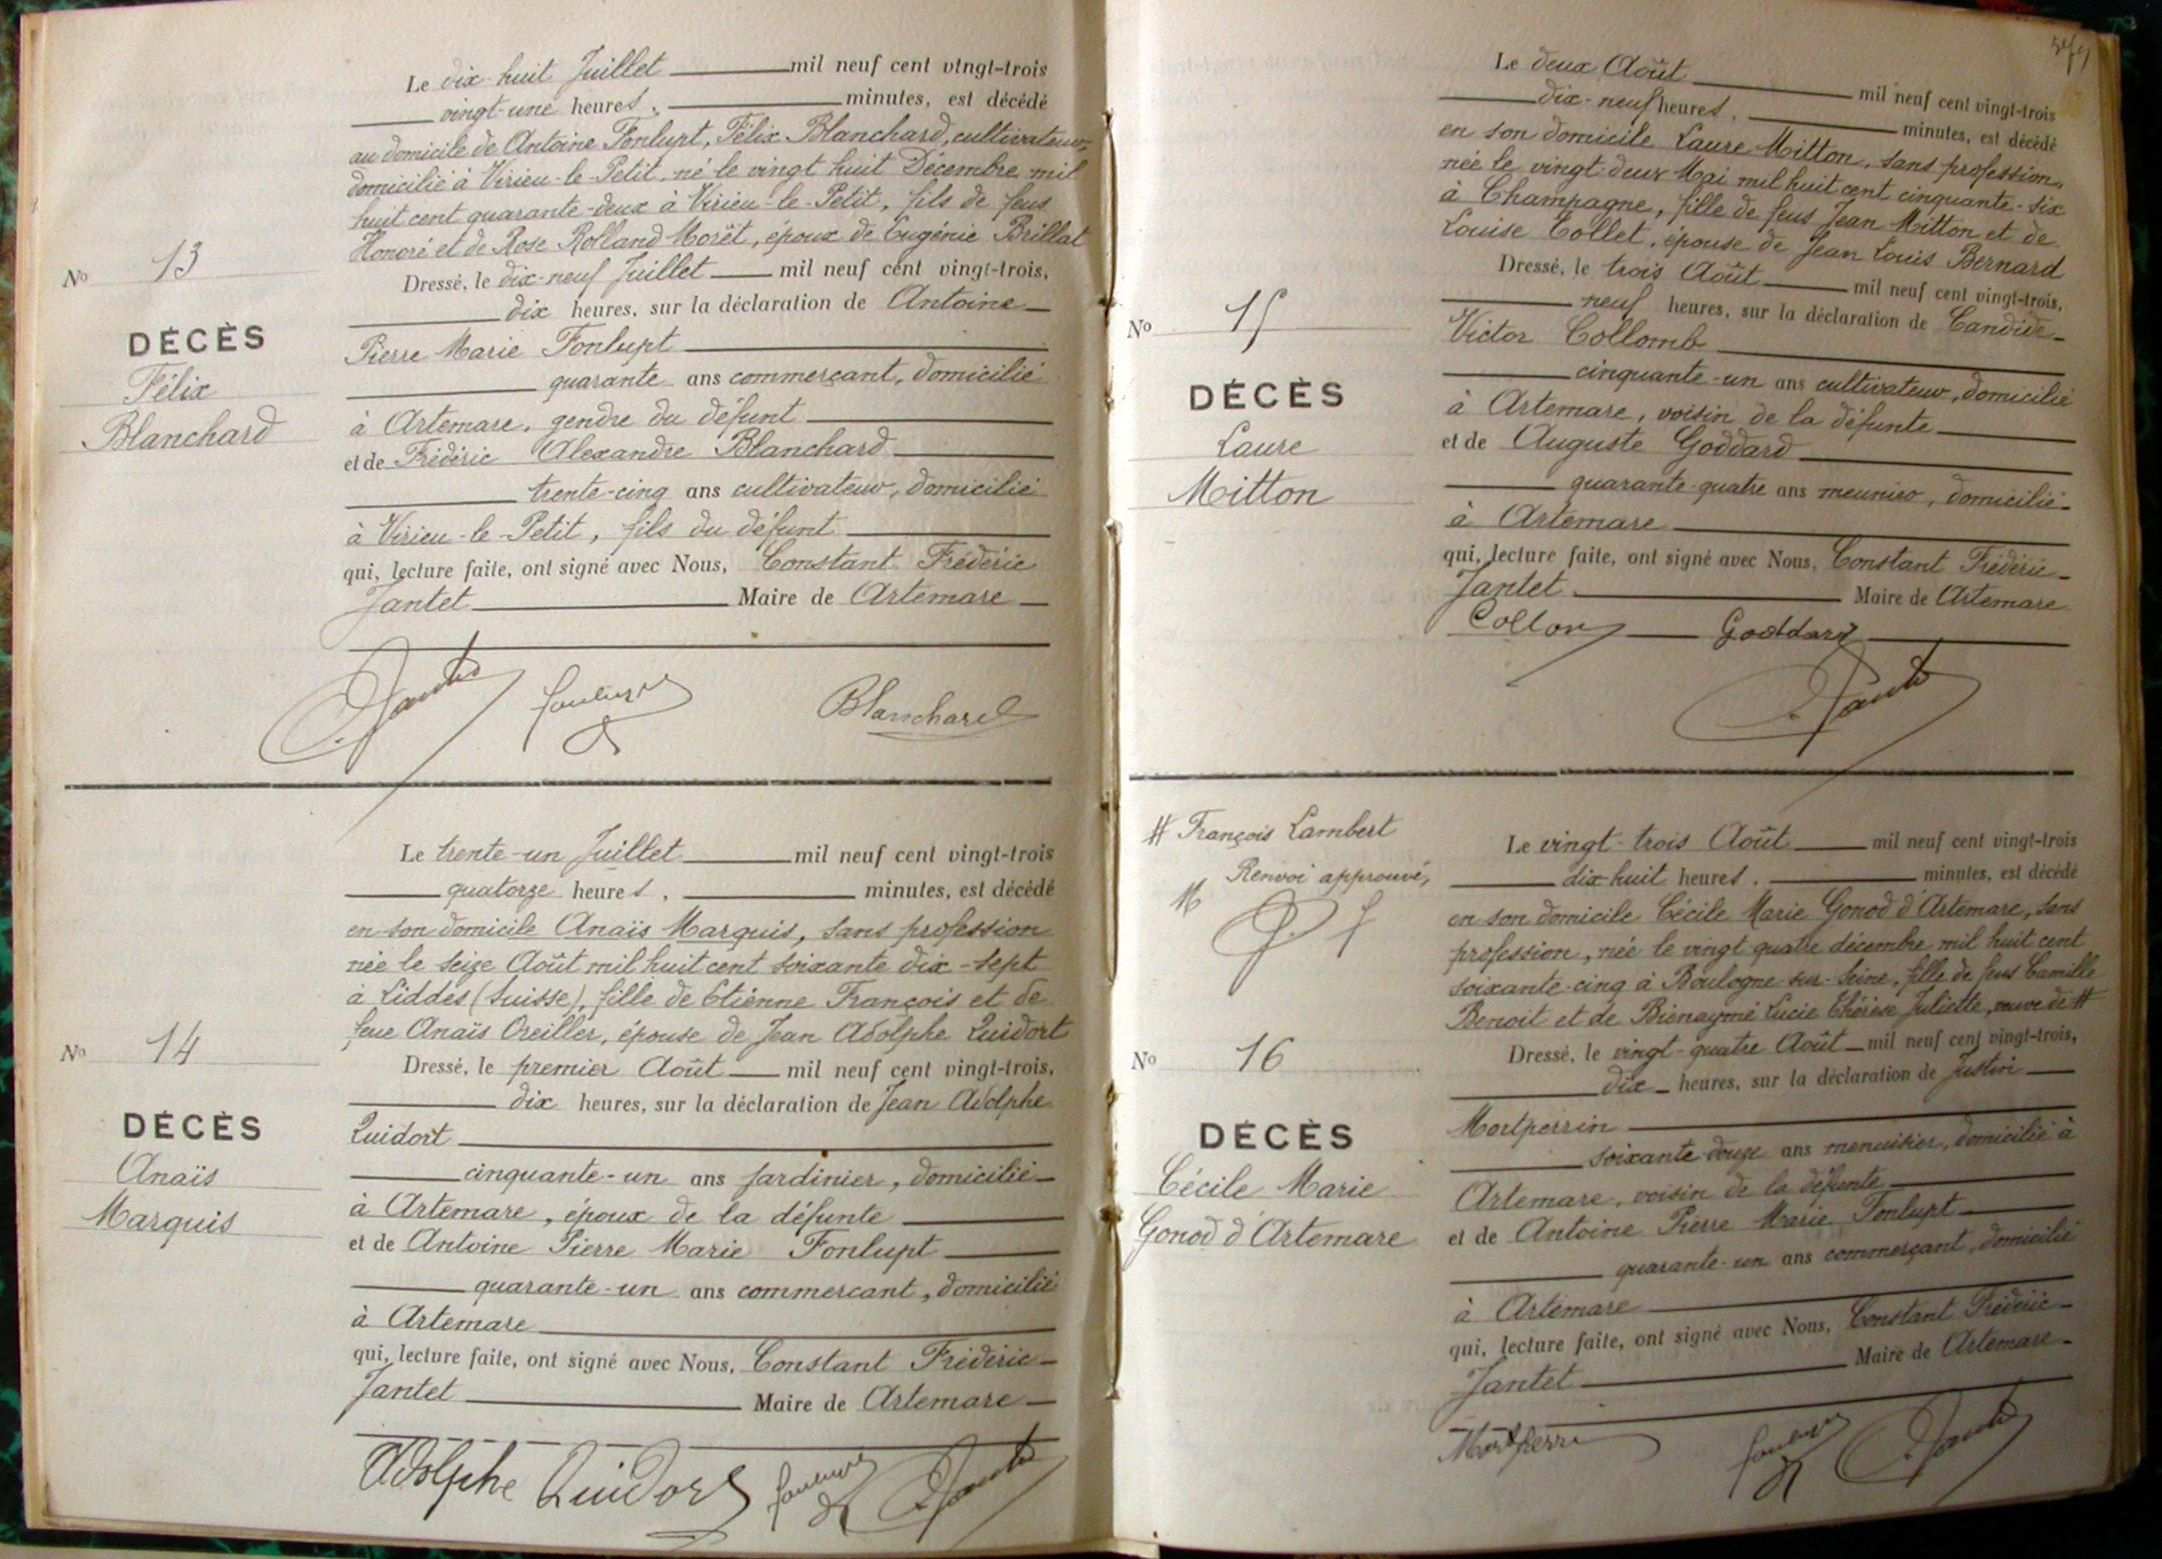 Le dix-huit Juillet mil neuf cent vingt-trois
vingt-une heures, minutes, est décédé
au domicile de Antoine Fonlupt, Félix Blanchard, cultivateur,
domicilié à Virieu-le-Petit, né le vingt huit Décembre mil
huit cent quarante-deux à Virieu-le-Petit, fils de feus
Honoré et de Rose Rolland Morët, époux de Eugénie Brillat
No 13
Dressé, le dix-neuf Juillet mil neuf cent vingt-trois,
dix heures, sur la déclaration de Antoine
DÉCÈS
Félix
Blanchard
Pierre Marie Fonlupt
quarante ans commerçant, domicilié
à Artemare, gendre du défunt
et de Frédéric Alexandre Blanchard
trente-cinq ans cultivateur, domicilié
à Virieu-le-Petit, fils du défunt
qui, lecture faite, ont signé avec Nous, Constant Frédéric
Jantet Maire de Artemare
Jantet Fonlupt Blanchard
Le trente-un Juillet mil neuf cent vingt-trois
quatorze heures, minutes, est décédé
en son domicile Anaïs Marquis, sans profession
née le seize Août mil huit cent soixante dix-sept
à Liddes (Suisse), fille de Etienne François et de
feue Anaïs Oreiller, épouse de Jean Adolphe Quidort
No 14
Dressé, le premier Août mil neuf cent vingt-trois,
dix heures, sur la déclaration de Jean Adolphe
DÉCÈS
Anaïs
Marquis
Quidort
cinquante-un ans jardinier, domicilié
à Artemare, époux de la défunte
et de Antoine Pierre Marie Fonlupt
quarante-un ans commercant, domicilié
à Artemare
qui, lecture faite, ont signé avec Nous, Constant Frédéric
Jantet Maire de Artemare
Adolphe Quidort Fonlupt Jantet
Le deux Août mil neuf cent vingt-trois
dix-neuf heures, minutes, est décédé
en son domicile Laure Mitton, sans profession,
née le vingt-deux Mai mil huit cent cinquante-six
à Champagne, fille de feus Jean Mitton et de
Louise Collet, épouse de Jean Louis Bernard
No 15
Dressé, le trois Août mil neuf cent vingt-trois,
neuf heures, sur la déclaration de Candide
DÉCÈS
Laure
Mitton
Victor Collomb
cinquante-un ans cultivateur, domicilié
à Artemare, voisin de la défunte
et de Auguste Goddard
quarante-quatre ans meunier, domicilié
à Artemare
qui, lecture faite, ont signé avec Nous, Constant Frédéric
Jantet Maire de Artemare
Goddard
Jantet
# François Lambert
Renvoi approuvé,
M
Le vingt-trois Août mil neuf cent vingt-trois
dix-huit heures, minutes, est décédé
en son domicile Cécile Marie Gonod d'Artemare, sans
profession, née le vingt quatre décembre mil huit cent
soixante-cinq à Boulogne-sur-Seine, fille de feus Camille
Benoit et de Bienaymé Lucie Thérèse Juliette, veuve de #
No 16
Dressé, le vingt-quatre Août mil neuf cent vingt-trois,
dix heures, sur la déclaration de Justin
DÉCÈS
Cécile Marie
Gonod d'Artemare
Mortperrin
soixante-douze ans menuisier, domicilié à
Artemare, voisin de la défunte
et de Antoine Pierre Marie Fonlupt
quarante-un ans commerçant, domicilié
à Artemare
qui, lecture faite, ont signé avec Nous, Constant Frédéric
Jantet Maire de Artemare
Mortperrin Fonlupt Jantet